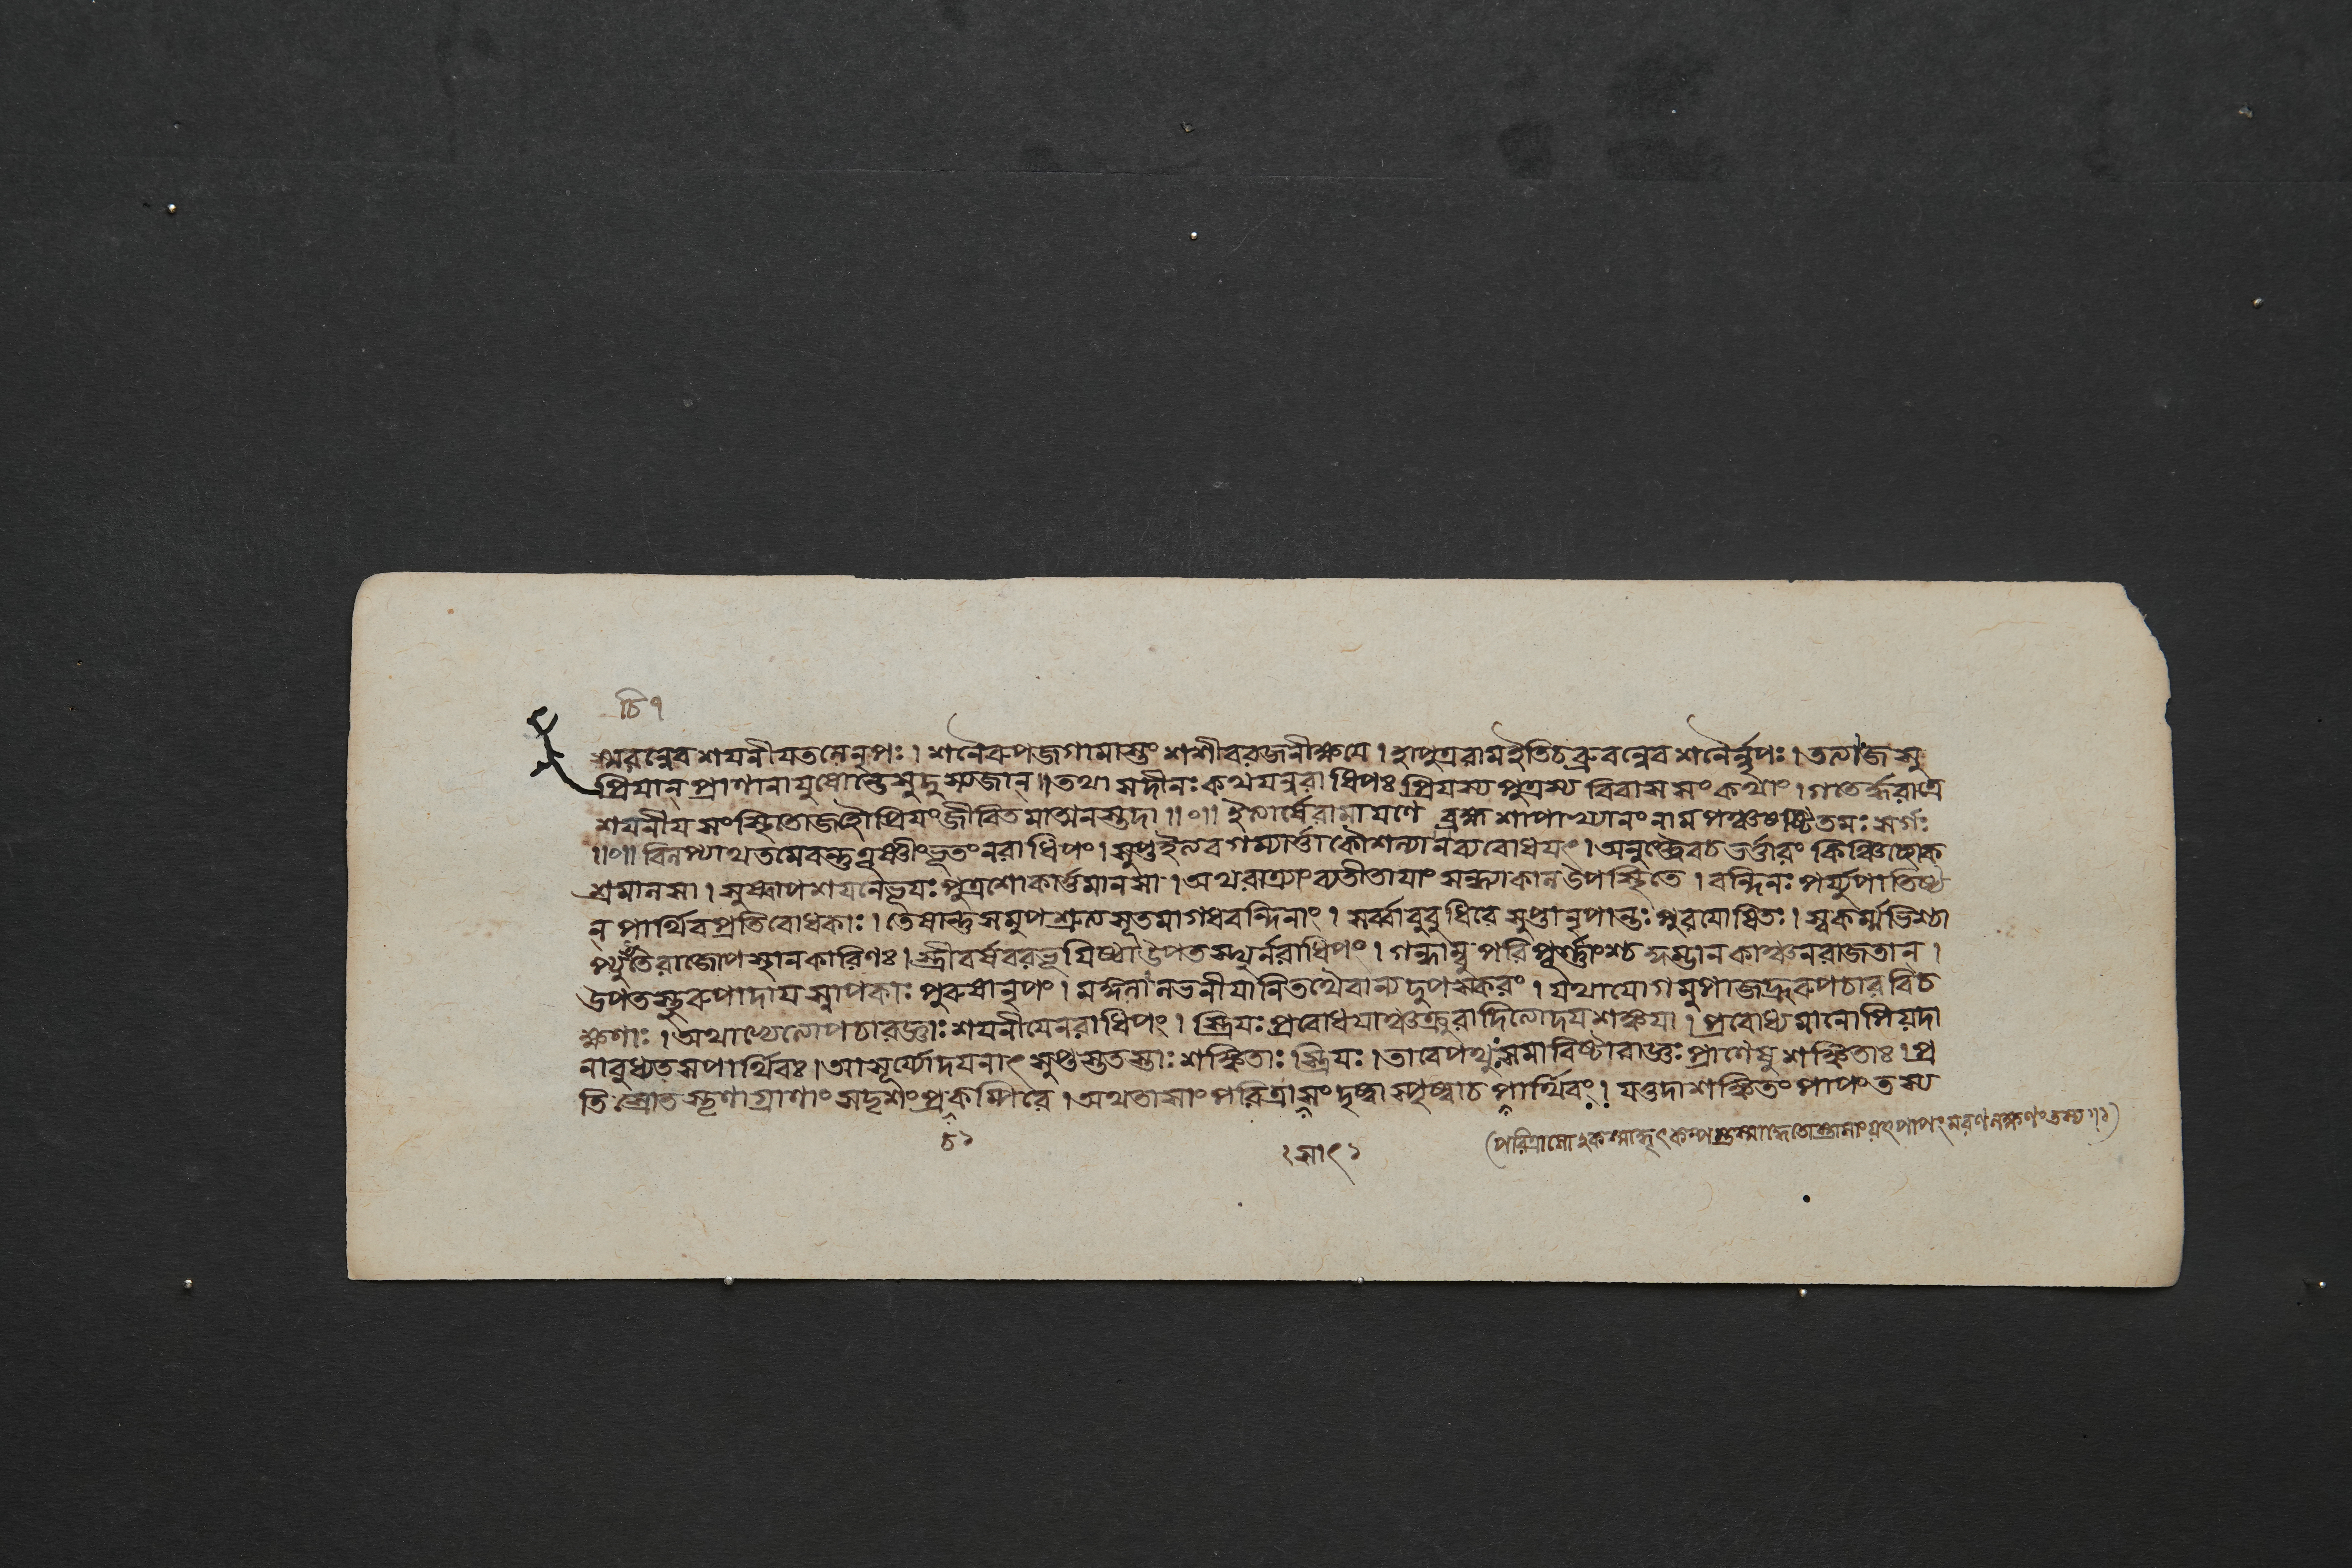 চি ৭
স্মরন্নেব শয়নীয়তলে নৃপঃ । শনৈরুপজগামাস্তং শশীব রজনীক্ষয়ে । হা পুত্র রাম ইতি চ ব্রুবন্নেব শনৈর্নৃপঃ । তত্যাজ সু
প্রিয়ান্ প্রাণানায়ুষোন্তে সুদুস্ত্যজান্ ॥ তথা স দীনঃ কথয়ন্নরাধিপঃ প্রিয়স্য পুত্রস্য বিবাস সংকথাং । গতের্দ্ধরাত্রে
শয়নীয় সংস্থিতো জহৌ প্রিয়ং জীবিতমাত্মনস্তদা ॥০॥ ইত্যার্ষে রামায়ণে ব্রহ্মশাপাখ্যানং নাম পঞ্চষষ্টিতমঃ সর্গঃ
॥০॥ বিলপ্যাথ তমেবন্তু তূষ্ণীংভূতং নরাধিপং । সুপ্ত ইত্যবগম্যার্ত্তা কৌশল্যা ন ব্যবোধয়ৎ । অনুক্ত্বৈব চ ভর্ত্তারং কিঞ্চিচ্ছোক
শ্রমালসা । সুষ্বাপ শয়নে ভূয়ঃ পুত্রশোকার্ত্তমানসা । অথ রাত্র্যাং ব্যতীতায়াং সন্ধ্যাকাল উপস্থিতে । বন্দিনঃ পর্য্যুপাতিষ্ঠ
ন্ পার্থিব প্রতিবোধকাঃ । তেষান্তু সমুপশ্রুত্য সূতমাগধবন্দিনাং । সর্ব্বা বুবুধিরে সুপ্তা নৃপান্তঃপুরযোষিতঃ । স্বকর্ম্মাভিশ্চো
রাজোপস্থানকারিণঃ । স্ত্রীবর্ষবরভূয়িষ্ঠা উপতস্থুর্নরাধিপং । গন্ধাম্বু পরিপূর্ণাংশ্চ কুম্ভান্ কাঞ্চনরাজতান্ ।
উপতস্থুরুপাদায় স্নাপকাঃ পুরুষা নৃপং । মঙ্গলালভনীয়ানি তথৈবান্যদুপস্করং । যথাযোগমুপাজহ্রুরুপচার বিচ
ক্ষণাঃ । অথাভ্যেত্যোপচারজ্ঞাঃ শয়নীয়ে নরাধিপং । স্ত্রিয়ঃ প্রবোধয়াঞ্চক্রুরাদিত্যোদয়শঙ্কয়া । প্রবোধ্যমানোপি যদা
নাবুধ্যত স পার্থিবঃ । আ সূর্য্যোদয়নাৎ সুপ্তস্ততস্তাঃ শঙ্কিতাঃ স্ত্রিয়ঃ । তা বেপথুসমাবিষ্টা রাজ্ঞঃ প্রাণেষু শঙ্কিতাঃ । প্র
তিস্রোতস্তৃণাগ্রাণাং সদৃশং প্রকম্পিরে । অথ তাসাং পরিত্রাসং দৃষ্ট্বা স্পৃষ্ট্বা চ পার্থিবং । যত্তদাশঙ্কিতং পাপং তস্য
চ২
সাৎ২